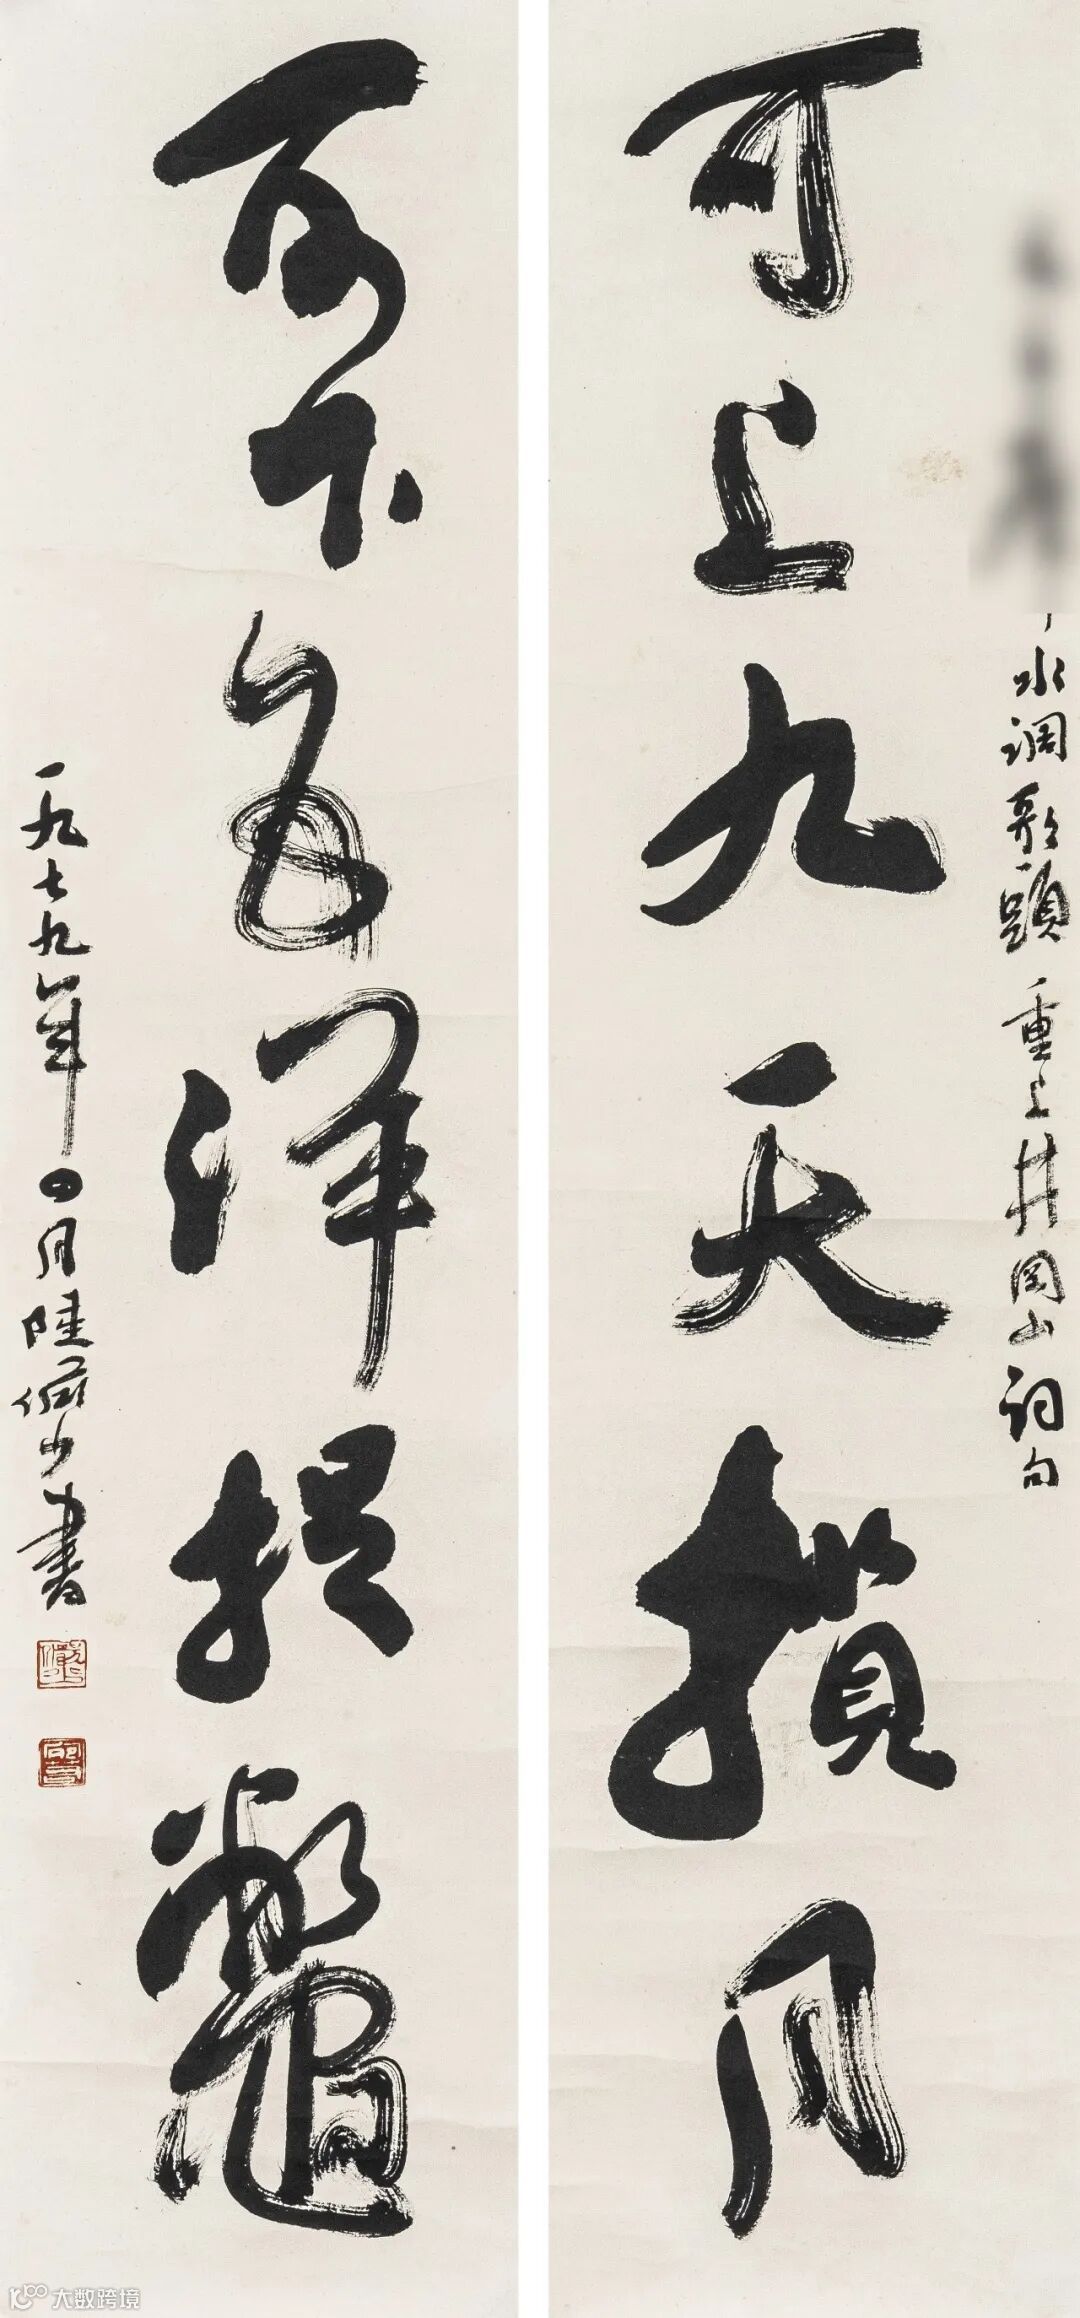 水調歌頭 重上井岡山詞句
可上九天攬月
可下五洋捉鼈
一九七九年四月陸儼少書
大数跨境